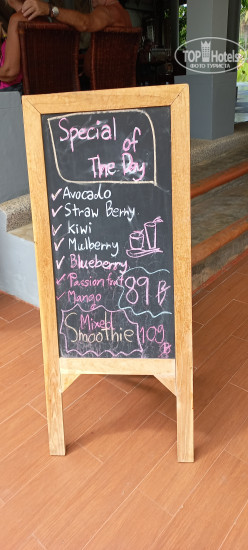 TOPHotels
ФОТО ТУРИСТА
Special of
The Day
✓Avocado
✓Straw Berry
✓kiwi
✓Mulberry
✓Blueberry
✓Passion fruit
✓Mango
89 ฿
Mixed
Smoothie 109 ฿